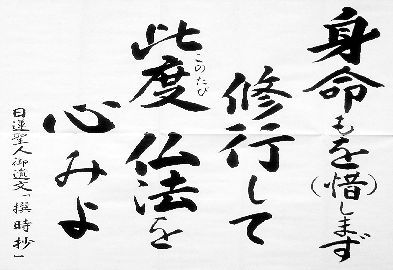 身命もを(惜)しまず
修行して
此度仏法を
このたび
心みよ
日蓮聖人御遺文「撰時抄」